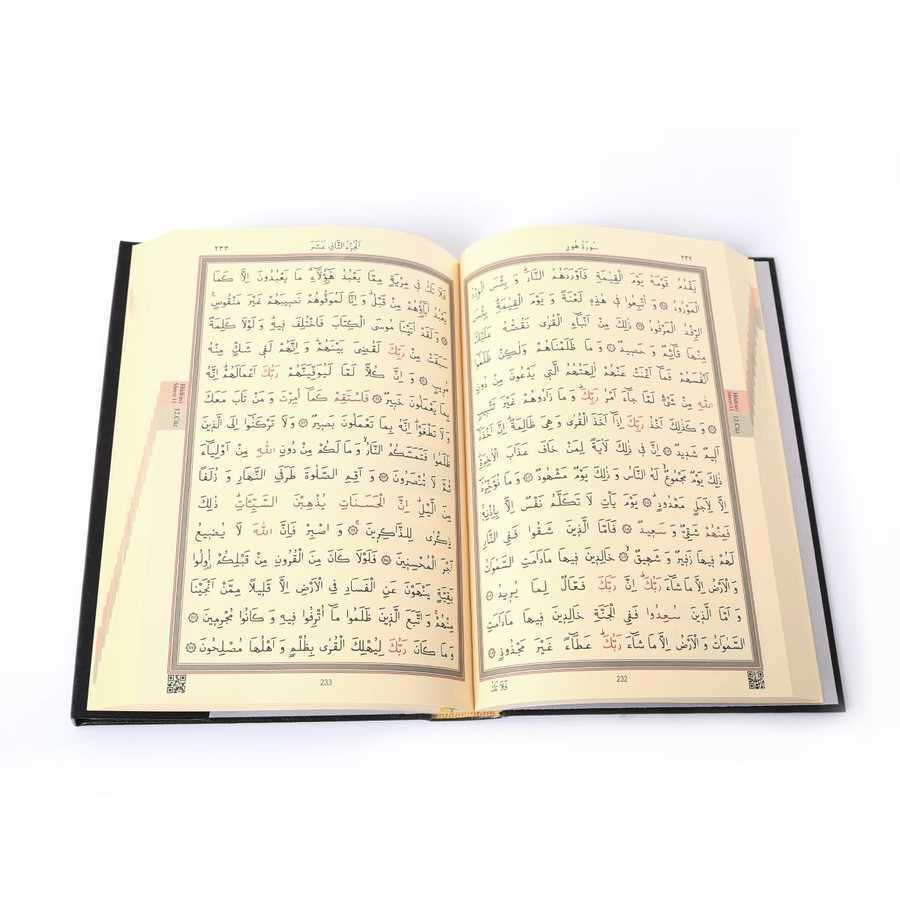 سُورَةُ هُودٍ
٢٣٢
يَقْدُمُ قَوْمَهُ يَوْمَ الْقِيٰمَةِ فَاَوْرَدَهُمُ النَّارَ وَ بِئْسَ الْوِرْدُ
الْمَوْرُودُ وَ اُتْبِعُوا فِي هٰذِهِ لَعْنَةً وَ يَوْمَ الْقِيٰمَةِ بِئْسَ
الرِّفْدُ الْمَرْفُودُ ذٰلِكَ مِنْ اَنْبَاءِ الْقُرٰى نَقُصُّهُ عَلَيْكَ
مِنْهَا قَائِمٌ وَ حَصِيدٌ وَ مَا ظَلَمْنَاهُمْ وَلٰكِنْ ظَلَمُوا
اَنْفُسَهُمْ فَمَا اَغْنَتْ عَنْهُمْ اٰلِهَتُهُمُ الَّتِي يَدْعُونَ مِنْ دُونِ
اللّٰهِ مِنْ شَيْءٍ لَمَّا جَاءَ اَمْرُ رَبِّكَ وَ مَا زَادُوهُمْ غَيْرَ تَتْبِيبٍ
وَ كَذٰلِكَ اَخْذُ رَبِّكَ اِذَا اَخَذَ الْقُرٰى وَ هِيَ ظَالِمَةٌ اِنَّ اَخْذَهُ
اَلِيمٌ شَدِيدٌ اِنَّ فِي ذٰلِكَ لَاٰيَةً لِمَنْ خَافَ عَذَابَ الْاٰخِرَةِ
ذٰلِكَ يَوْمٌ مَجْمُوعٌ لَهُ النَّاسُ وَ ذٰلِكَ يَوْمٌ مَشْهُودٌ وَ مَا نُؤَخِّرُهُ
اِلَّا لِاَجَلٍ مَعْدُودٍ يَوْمَ يَأْتِ لَا تَكَلَّمُ نَفْسٌ اِلَّا بِاِذْنِهِ
فَمِنْهُمْ شَقِيٌّ وَ سَعِيدٌ فَاَمَّا الَّذِينَ شَقُوا فَفِي النَّارِ
لَهُمْ فِيهَا زَفِيرٌ وَ شَهِيقٌ خَالِدِينَ فِيهَا مَادَامَتِ السَّمٰوَاتُ
وَ الْاَرْضُ اِلَّا مَا شَاءَ رَبُّكَ اِنَّ رَبَّكَ فَعَّالٌ لِمَا يُرِيدُ
وَ اَمَّا الَّذِينَ سُعِدُوا فَفِي الْجَنَّةِ خَالِدِينَ فِيهَا مَادَامَتِ
السَّمٰوَاتُ وَ الْاَرْضُ اِلَّا مَا شَاءَ رَبُّكَ عَطَاءً غَيْرَ مَجْذُوذٍ
232
فَلَا تَكُ
اَلْجُزْءُ الثَّانِي عَشَرَ
٢٣٣
فَلَا تَكُ فِي مِرْيَةٍ مِمَّا يَعْبُدُ هٰؤُلَاءِ مَا يَعْبُدُونَ اِلَّا كَمَا
يَعْبُدُ اٰبَاؤُهُمْ مِنْ قَبْلُ وَ اِنَّا لَمُوَفُّوهُمْ نَصِيبَهُمْ غَيْرَ مَنْقُوصٍ
وَ لَقَدْ اٰتَيْنَا مُوسَى الْكِتَابَ فَاخْتُلِفَ فِيهِ وَ لَوْلَا كَلِمَةٌ
سَبَقَتْ مِنْ رَبِّكَ لَقُضِيَ بَيْنَهُمْ وَ اِنَّهُمْ لَفِي شَكٍّ مِنْهُ
مُرِيبٍ وَ اِنَّ كُلًّا لَمَّا لَيُوَفِّيَنَّهُمْ رَبُّكَ اَعْمَالَهُمْ اِنَّهُ
بِمَا يَعْمَلُونَ خَبِيرٌ فَاسْتَقِمْ كَمَا اُمِرْتَ وَ مَنْ تَابَ مَعَكَ
وَ لَا تَطْغَوْا اِنَّهُ بِمَا تَعْمَلُونَ بَصِيرٌ وَ لَا تَرْكَنُوا اِلَى الَّذِينَ
ظَلَمُوا فَتَمَسَّكُمُ النَّارُ وَ مَا لَكُمْ مِنْ دُونِ اللّٰهِ مِنْ اَوْلِيَاءَ
ثُمَّ لَا تُنْصَرُونَ وَ اَقِمِ الصَّلٰوةَ طَرَفَيِ النَّهَارِ وَ زُلَفًا
مِنَ الَّيْلِ اِنَّ الْحَسَنَاتِ يُذْهِبْنَ السَّيِّئَاتِ ذٰلِكَ
ذِكْرٰى لِلذَّاكِرِينَ وَ اصْبِرْ فَاِنَّ اللّٰهَ لَا يُضِيعُ
اَجْرَ الْمُحْسِنِينَ فَلَوْلَا كَانَ مِنَ الْقُرُونِ مِنْ قَبْلِكُمْ اُولُوا
بَقِيَّةٍ يَنْهَوْنَ عَنِ الْفَسَادِ فِي الْاَرْضِ اِلَّا قَلِيلًا مِمَّنْ اَنْجَيْنَا
مِنْهُمْ وَ اتَّبَعَ الَّذِينَ ظَلَمُوا مَا اُتْرِفُوا فِيهِ وَ كَانُوا مُجْرِمِينَ
وَ مَا كَانَ رَبُّكَ لِيُهْلِكَ الْقُرٰى بِظُلْمٍ وَ اَهْلُهَا مُصْلِحُونَ
233